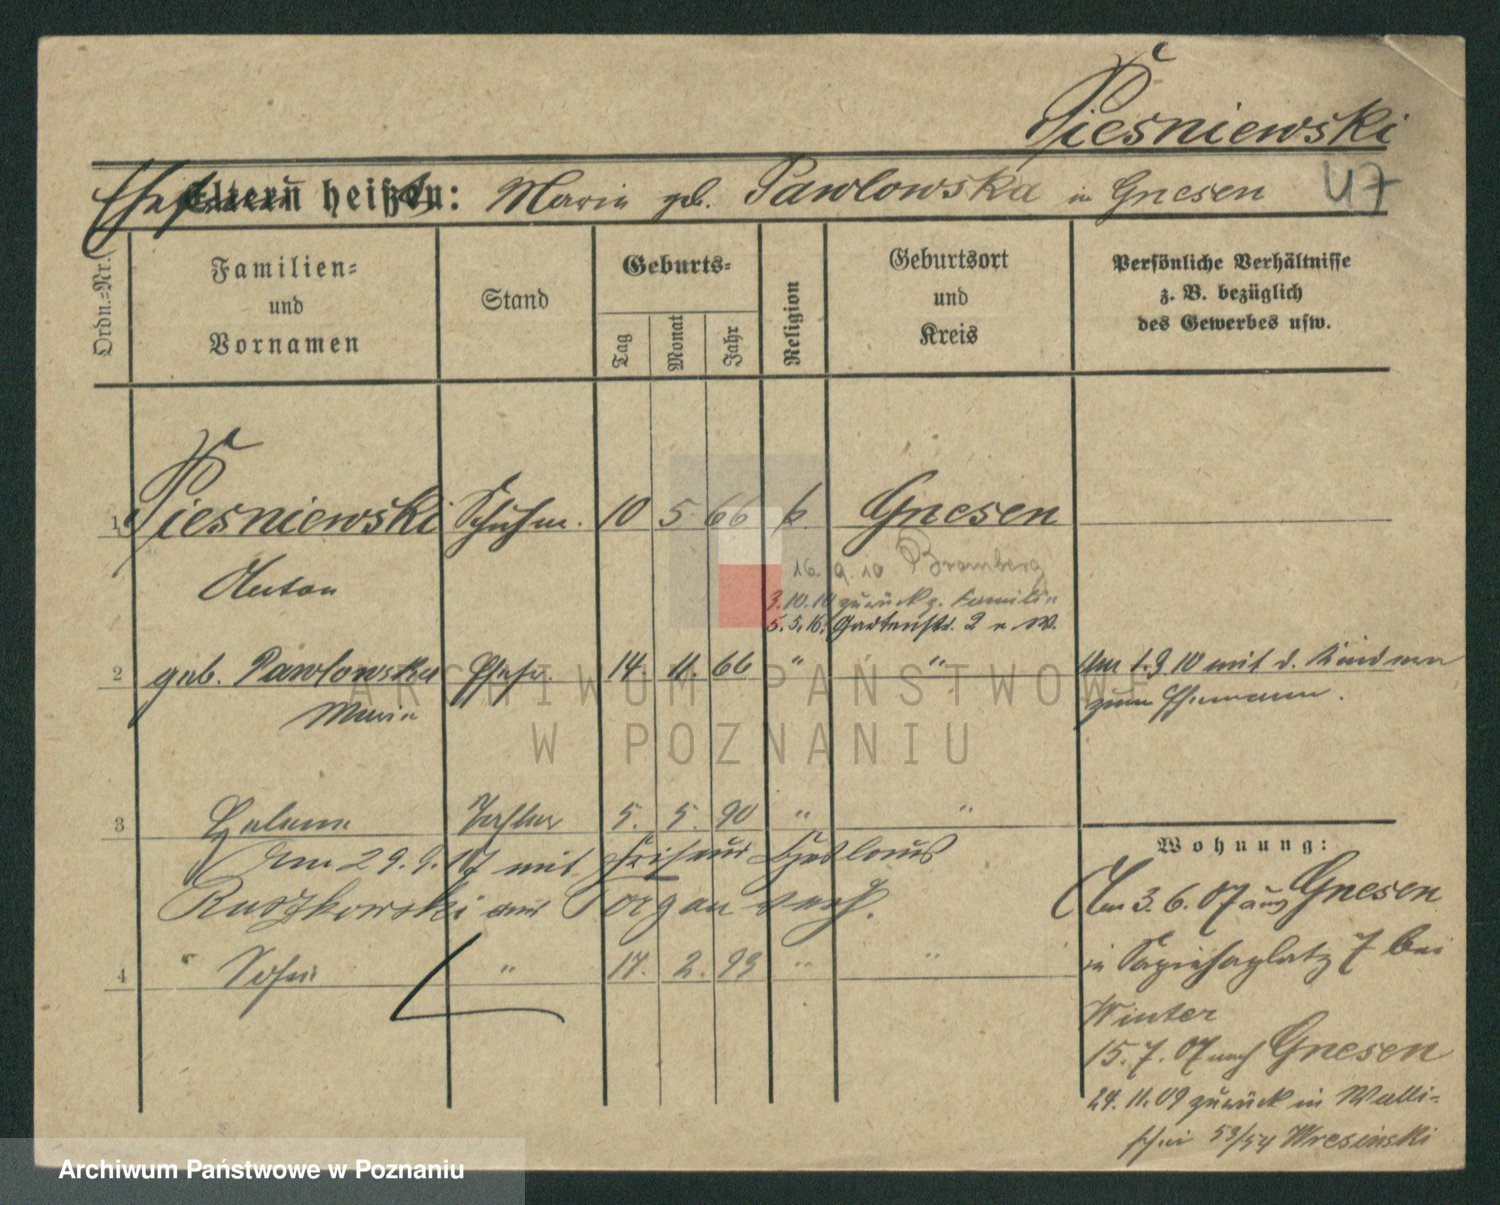 Piesniewski
Ehefrau heißt: Marie geb. Pawlowska in Gnesen 47
Ordn.=Nr.
Familien=
und
Vornamen
Stand
Geburts=
Tag
Monat
Jahr
Religion
Geburtsort
und
Kreis
Persönliche Verhältnisse
z. B. bezüglich
des Gewerbes usw.
1 Piesniewski Schuhm. 10 5 66 k. Gnesen
Anton
16. 9. 10 Bromberg
3.10.10 zurück z. Familie
5.5.16. Gartenstr. 2 n. W.
2 geb. Pawlowska Ehefr. 14. 11. 66 " " Am 1.9 10 mit d. Kindern
Marie zum Ehemann.
3 Helene Tochter 5. 5. 90 " "
Am 29.9.17 mit Friseur
Ruszkowski aus Torgau verh.
4 " 17. 2. 93 " "
Wohnung:
Am 3.6.07 aus Gnesen
in Sapiehaplatz 7 bei
Winter
15.7.07 nach Gnesen
24.11.09 zurück in Walli-
schei 53/54 Wresinski
ARCHIWUM PAŃSTWOWE
W POZNANIU
Archiwum Państwowe w Poznaniu